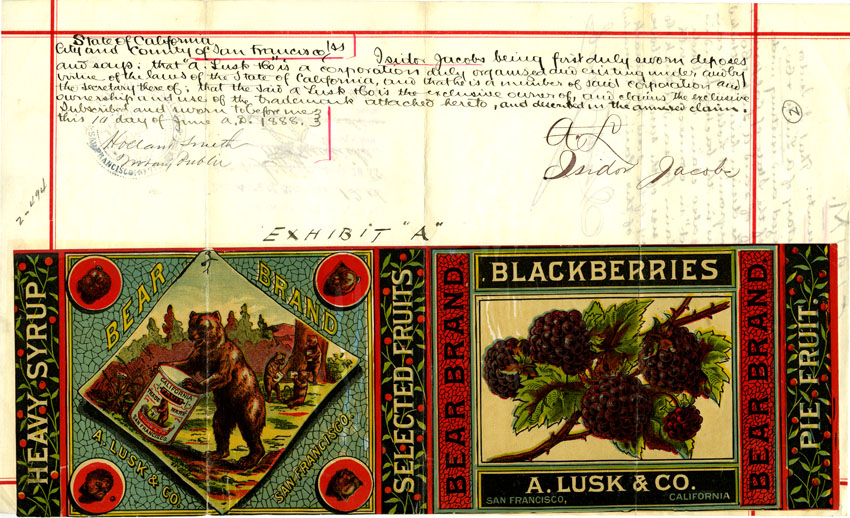 State of California
City and County of San Francisco } ss
Isidor Jacobs being first duly sworn deposes
and says: that "A Lusk & Co" is a corporation duly organized and existing under, and by
virtue of the laws of the State of California, and that he is a member of said corporation and
the secretary thereof; that the said A Lusk & Co is the exclusive owner of, and claims the exclusive
ownership and use of the trademark attached hereto, and described in the annexed claim.
Subscribed and sworn to before me
this 11 day of June A.D. 1888.
Holland Smith
Notary Public
A. L
Isidor Jacobs
2
2-494
EXHIBIT "A"
HEAVY SYRUP
BEAR BRAND
CALIFORNIA
SAN FRANCISCO
A. LUSK & CO.
SAN FRANCISCO.
SELECTED FRUITS
BEAR BRAND
BLACKBERRIES
A. LUSK & CO.
SAN FRANCISCO, CALIFORNIA
BEAR BRAND
PIE FRUIT.